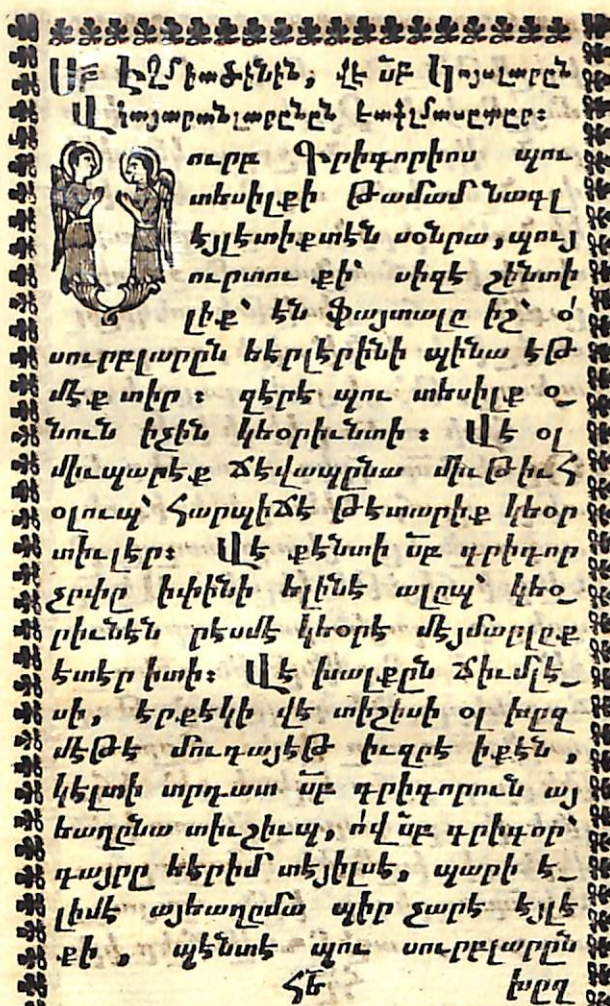 Սբ Էջմիածինէն, վէ սբ Կոյսլարըն
Վկայարանլարընըն Եափլմասըտըր։
ուրբ Գրիգորիոս պու
տեսիլքի Թամամ նագլ
էյլետիքտէն սօնրա, պույ
ուրտու քի՝ սիզէ շինտի
լիք՝ էն Փայտալը իշ՝ օ՛
սուրբլարըն եերլերինի պինա էթ
մէք տիր ։ զերէ պու տեսիլք օ_
նուն իչին կեօրիւնտի ։ Վէ օլ
միւպարէք ճէվապընա միւթիւհ
օլուպ՝ հարպիճէ թէտարիք կեօր
տիւլեր։ Վէ քէնտի սբ գրիգոր
չըփը իփինի ելինէ ալըպ՝ կեօ_
րիւնէն րէսմէ կեօրէ մէյմարլըք
ետեր իտի։ Վէ խալքըն ճիւմլէ_
սի, երքեկի վէ տիշիսի օլ խըզ
մէթէ մուգայէթ իւզրէ իքէն,
կելտի տրդատ սբ գրիգորուն այ
եաղընա տիւշիւպ, ո՛վ սբ գրիգոր՝
գայրը եերիմ տեյիլսէ, պարի է_
լիմէ այեաղըմա պիր չարէ էյլէ
քի, պէնտէ պու սուրբլարըն
ՀԵ խըզ